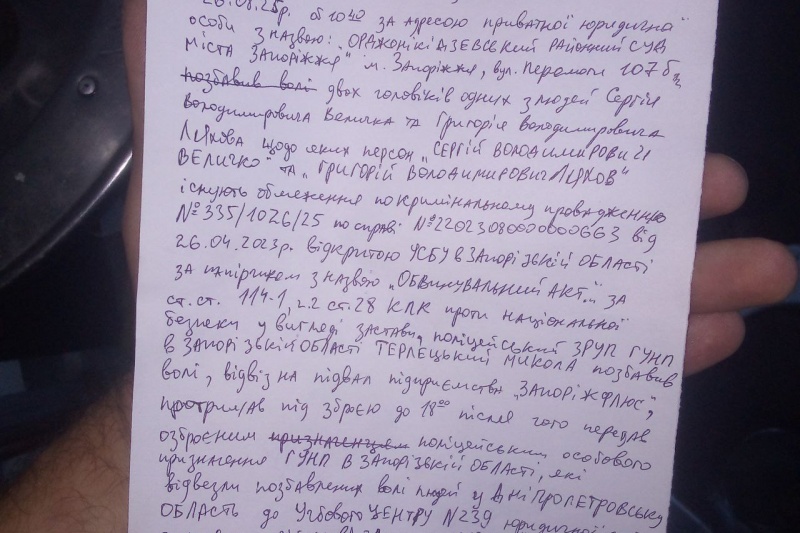 26.08.25р. об 10⁴⁰ за адресою приватної юридичної
особи з назвою: „ОРДЖОНІКІДЗЕВСЬКИЙ РАЙОННИЙ СУД
МІСТА ЗАПОРІЖЖЯ" м. Запоріжжя, вул. Перемоги 107 б
позбавив волі двох чоловіків одних з людей Сергія
Володимировича Величка та Григорія Володимировича
Ляхова щодо яких персон „СЕРГІЙ ВОЛОДИМИРОВИЧ
ВЕЛИЧКО" та „ГРИГОРІЙ ВОЛОДИМИРОВИЧ ЛЯХОВ"
існують обмеження по кримінальному провадженню
№335/1026/25 по справі від
26.04.2023р. відкритою УСБУ В ЗАПОРІЗЬКІЙ ОБЛАСТІ
за папірчиком з назвою „ОБВИНУВАЛЬНИЙ АКТ..." ЗА
ст.ст. 114-1, ч.2 ст.28 КПК проти національної
безпеки у вигляді застави, поліцейський ЗРУП ГУНП
в ЗАПОРІЗЬКІЙ ОБЛАСТІ ТЕРЛЕЦЬКИЙ МИКОЛА позбавив
волі, відвіз на підвал підприємства „ЗАПОРІЖФЛЮС",
протримав під зброєю до 18⁰⁰ після чого передав
озброєним призначенцям поліцейським особового
призначення ГУНП В ЗАПОРІЗЬКІЙ ОБЛАСТІ, які
відвезли позбавлених волі людей у ДНІПРОПЕТРОВСЬКУ
ОБЛАСТЬ до Учбового ЦЕНТРУ N239 юридичної